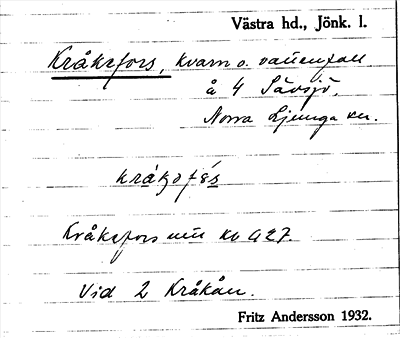 Västra hd., Jönk. l.
Kråkefors, kvarn o. vattenfall
å 4 Sävsjö,
Norra Ljunga sn.
Kråkefors kv G27.
Vid 2 Kråkån.
Fritz Andersson 1932.